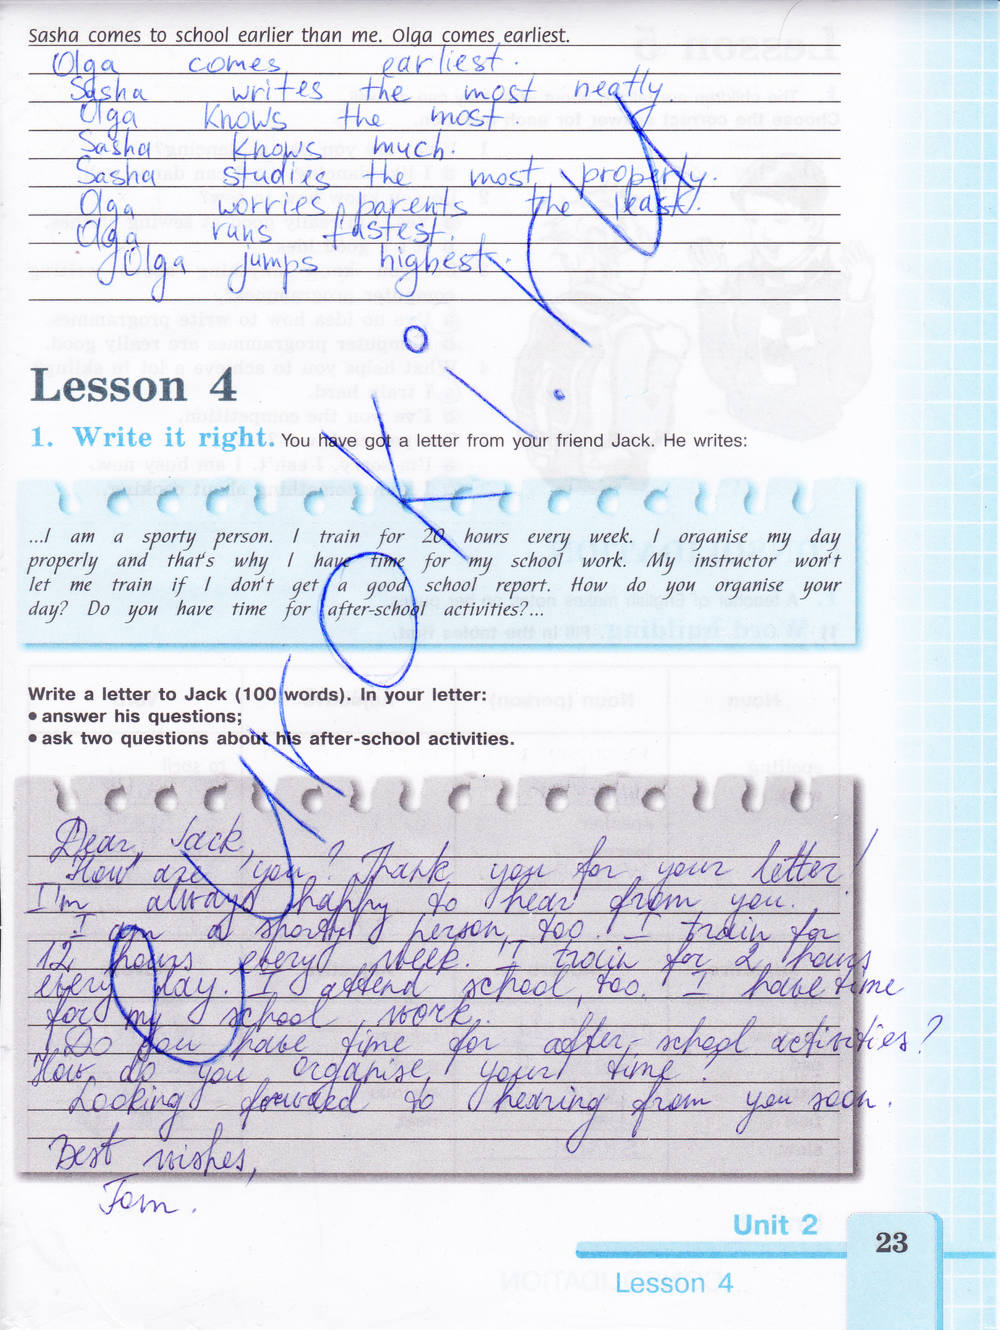 Sasha comes to school earlier than me. Olga comes earliest.
Olga comes earliest.
Sasha writes the most neatly
Olga knows the most
Sasha knows much.
Sasha studies the most properly.
Olga worries parents the least.
Olga runs fastest
Olga jumps highest.
Lesson 4
1. Write it right. You have got a letter from your friend Jack. He writes:
...I am a sporty person. I train for 20 hours every week. I organise my day
properly and that's why I have time for my school work. My instructor won't
let me train if I don't get a good school report. How do you organise your
day? Do you have time for after-school activities?...
Write a letter to Jack (100 words). In your letter:
• answer his questions;
• ask two questions about his after-school activities.
Dear Jack,
How are you? Thank you for your letter!
I'm always happy to hear from you.
I am a sporty person, too. I train for
12 hours every week. I train for 2 hours
every day. I attend school, too. I have time
for my school work.
Do you have time for after-school activities?
How do you organise your time?
Looking forward to hearing from you soon.
Best wishes,
Tom.
Unit 2
23
Lesson 4